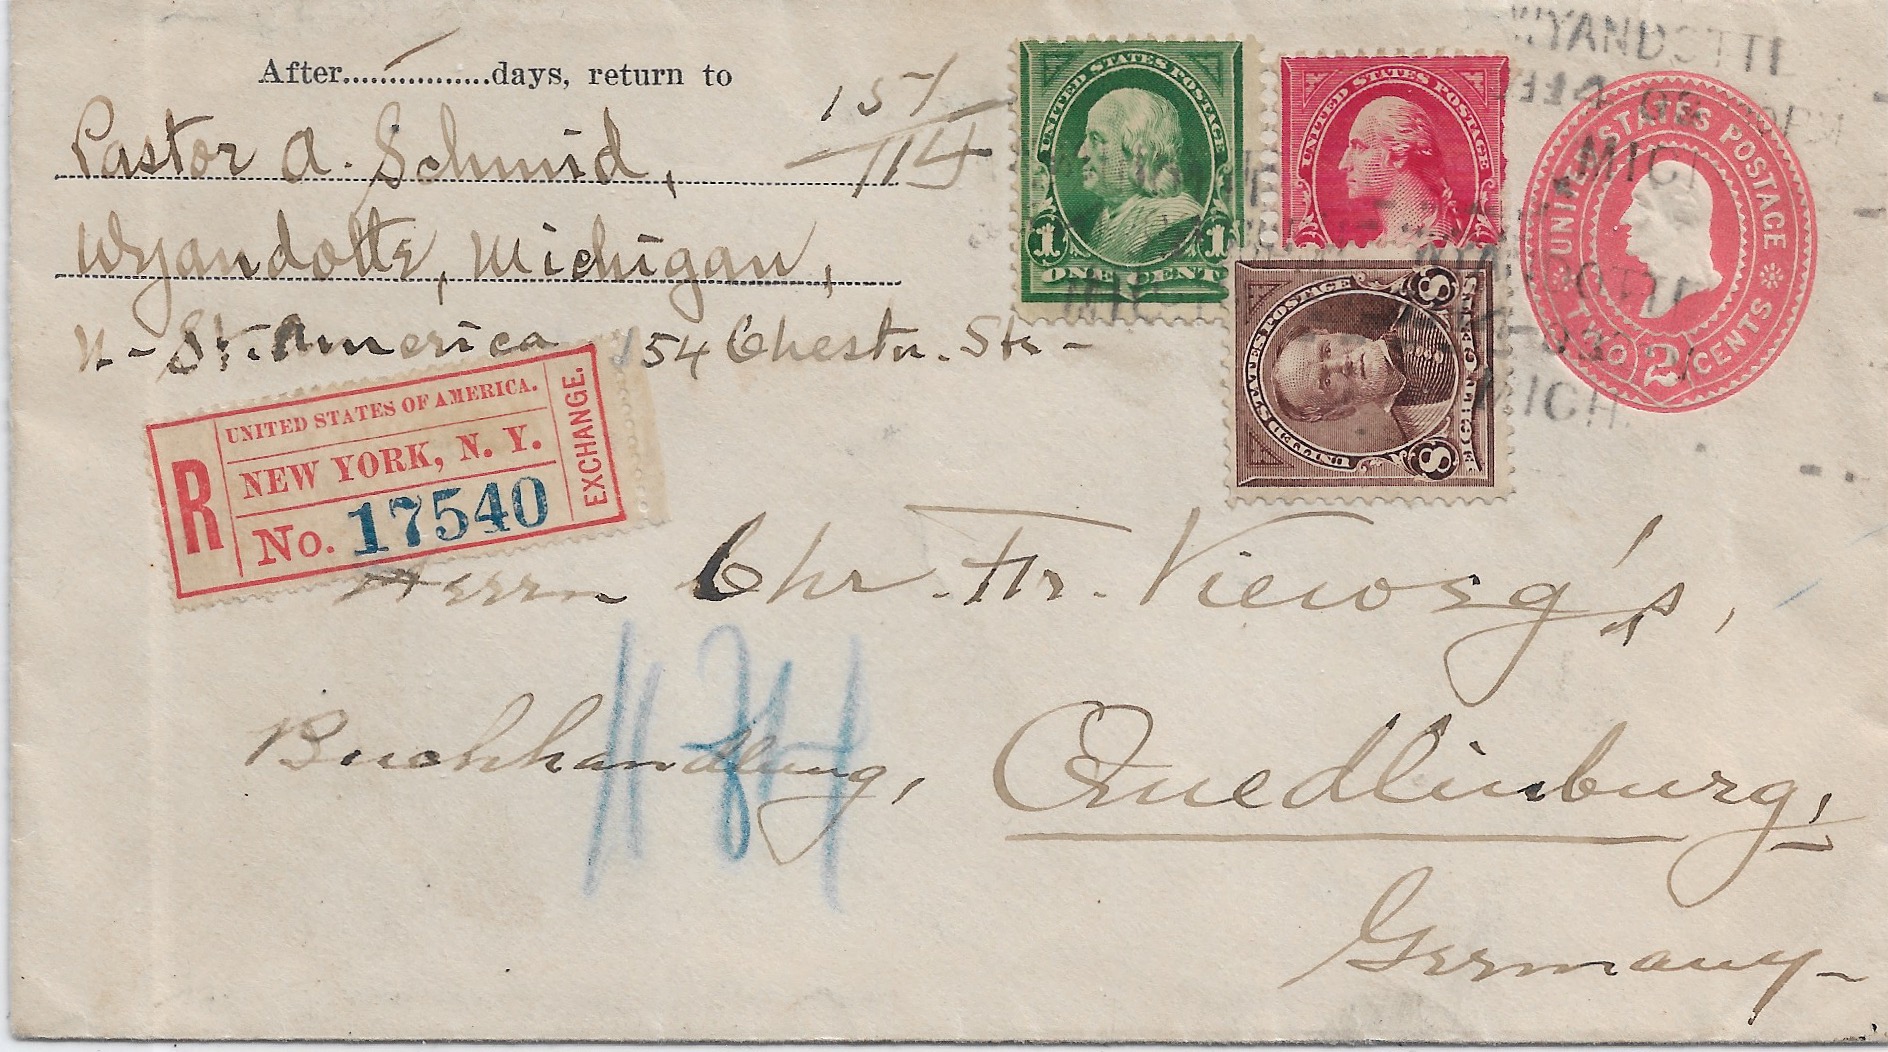 After................days, return to
Pastor A. Schmid,
Wyandotte, Michigan,
N- St. America 154 Chestn. Str-
151
114
UNITED STATES POSTAGE
1 1
ONE CENT
UNITED STATES POSTAGE
UNITED STATES POSTAGE
8 8
EIGHT CENTS
UNITED STATES POSTAGE
TWO 2 CENTS
WYANDOTTE
MICH.
R
UNITED STATES OF AMERICA.
NEW YORK, N. Y.
No. 17540
EXCHANGE.
Herrn Chr. Fr. Vieweg's,
Buchhandlung, Quedlinburg,
Germany-